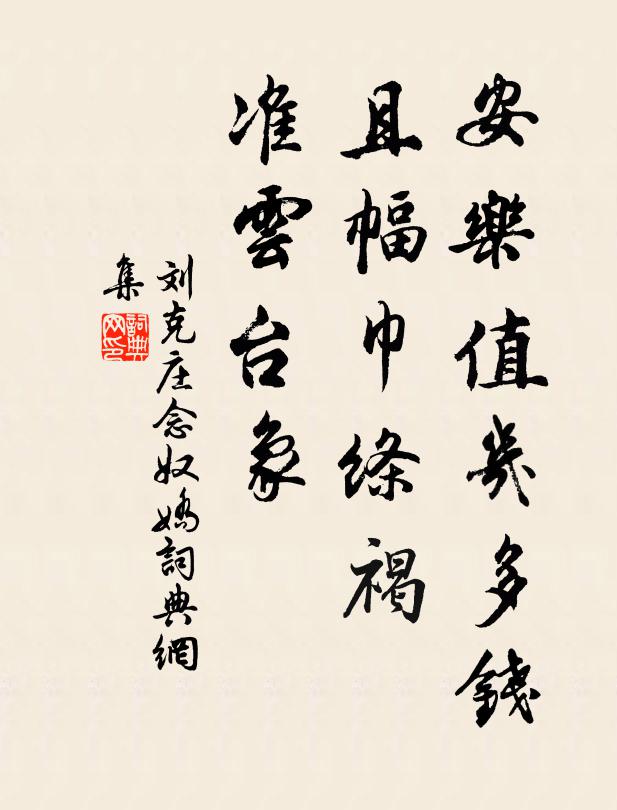 安樂值幾多錢
且幅巾絛褐
准雲台象
刘克庄念奴嬌詞典網
集
詞典
网印